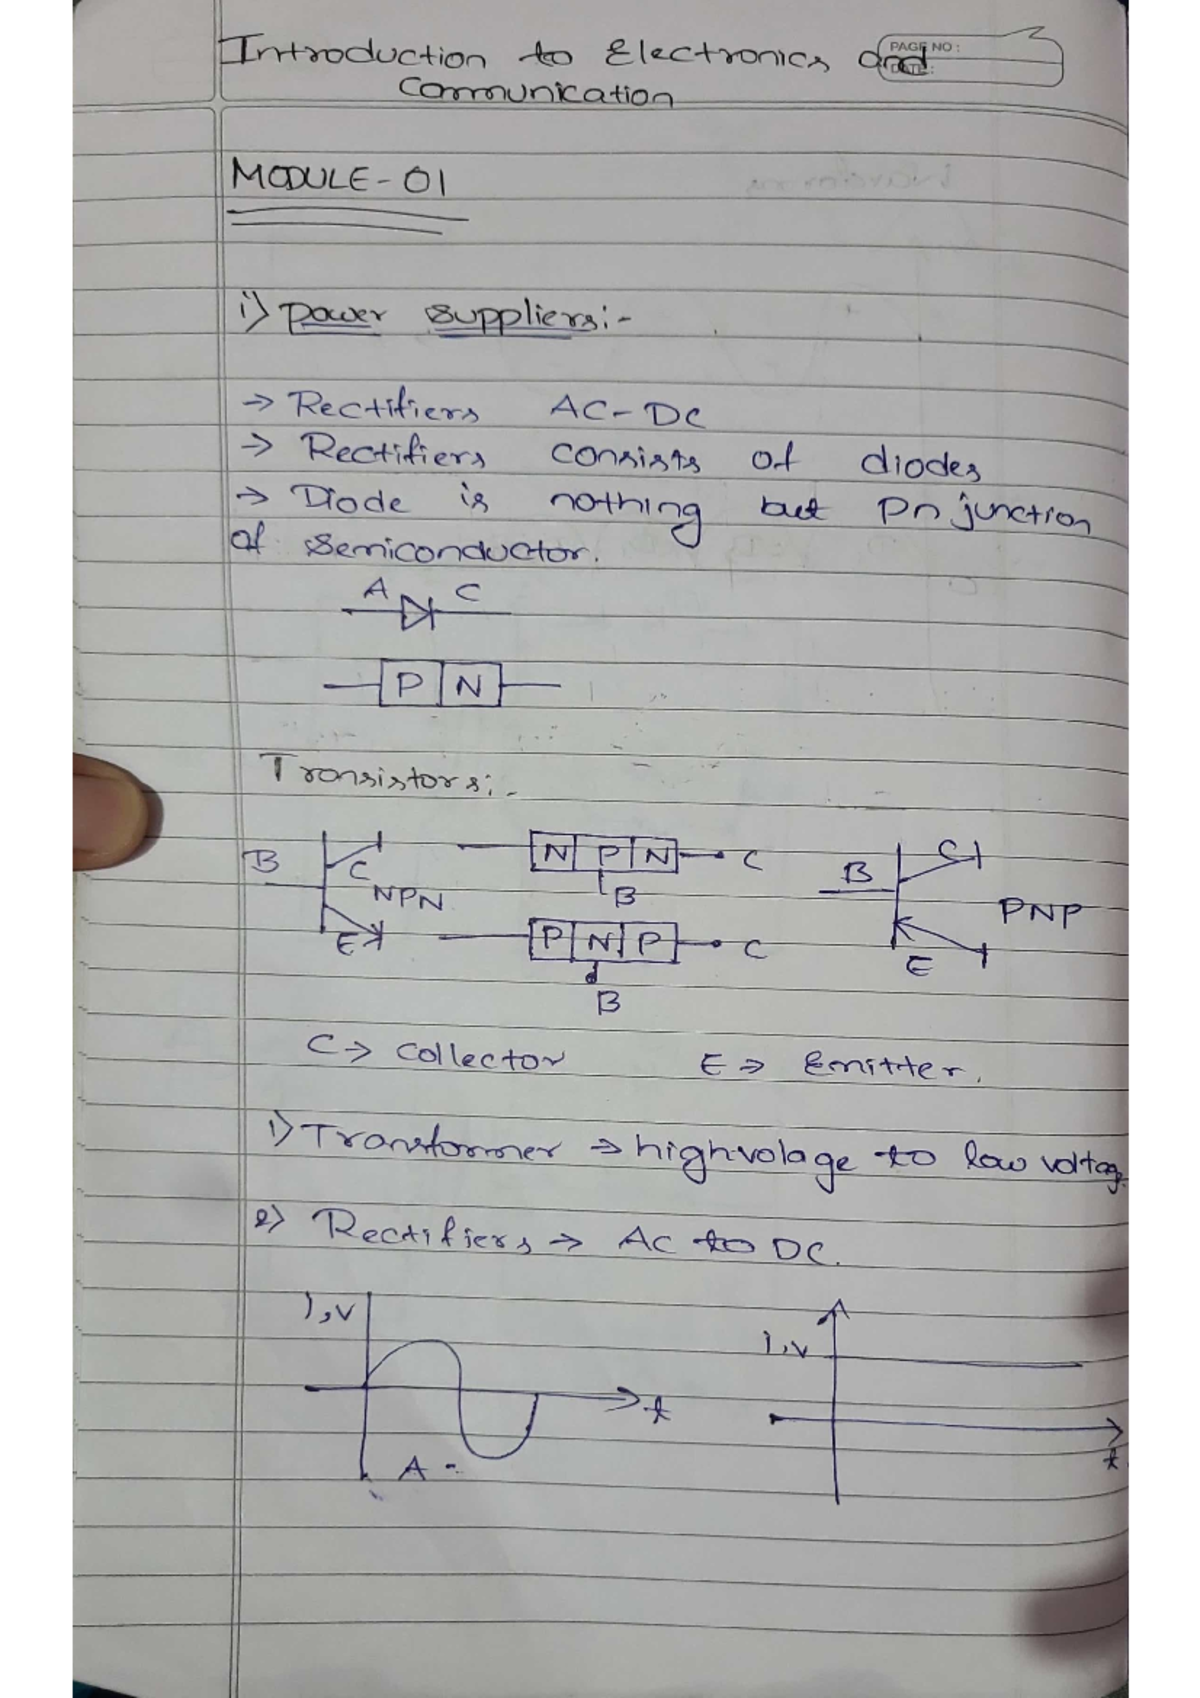 PAGE NO:
DATE:
Introduction to Electronics and
Communication
MODULE-01
i) power suppliers:-
→ Rectifiers AC-DC
→ Rectifiers consists of diodes
→ Diode is nothing but Pn junction
of semiconductor.
A C
P N
Transistors:-
B C NPN E
N P N C
B
P N P C
B
B C PNP E
C → collector E → Emitter.
1) Transformer → highvolage to low voltag
2) Rectifiers → AC to DC.
I,V t
A
I,V t